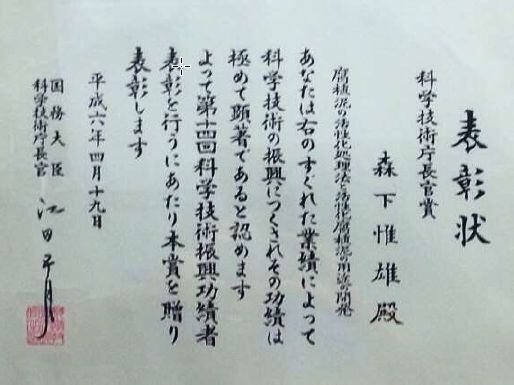 表彰状
科学技術庁長官賞
森下惟雄殿
腐植泥の活性化処理法と活性化腐植泥の用途の開発
あなたは右のすぐれた業績によって
科学技術の振興につくされその功績は
極めて顕著であると認めます
よって第十四回科学技術振興功績者
表彰を行うにあたり本賞を贈り
表彰します
平成六年四月十九日
国務大臣
科学技術庁長官
江田五月